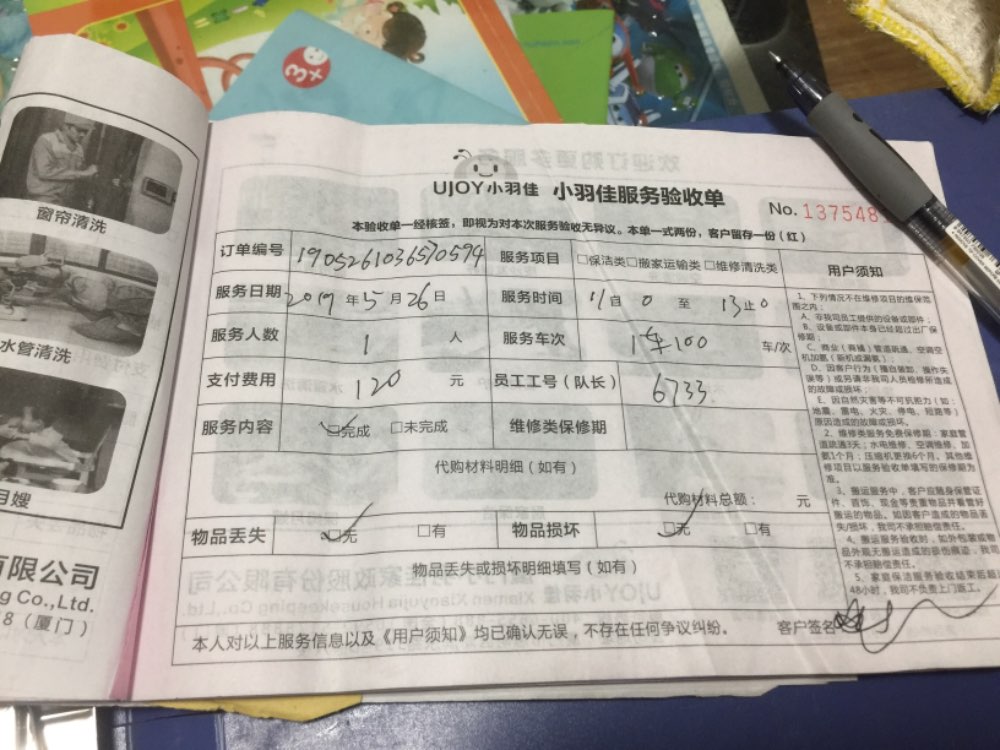 窗帘清洗
水管清洗
月嫂
有限公司
g Co.,Ltd.
8（厦门）
3+
UJOY小羽佳 小羽佳服务验收单
No. 137548
本验收单一经核签，即视为对本次服务验收无异议。本单一式两份，客户留存一份（红）
订单编号 1905261036570594 服务项目 □保洁类□搬家运输类□维修清洗类
服务日期 2019年5月26日 服务时间 11自0至13止0
服务人数 1人 服务车次 车/次
支付费用 120元 员工工号（队长） 6733
服务内容 □完成 □未完成 维修类保修期
代购材料明细（如有）
代购材料总额： 元
物品丢失 □无 □有 物品损坏 □无 □有
物品丢失或损坏明细填写（如有）
本人对以上服务信息以及《用户须知》均已确认无误，不存在任何争议纠纷。 客户签名
用户须知
1、下列情况不在维修项目的维保范
围之内：
A、非我司员工提供的设备或部件；
B、设备或部件本身已经超过出厂保
修期；
C、商业（商铺）管道疏通、空调空
机加氨（新机或漏氨）；
D、因客户行为（擅自装卸、操作失
误等）或另请非我司人员检修所造成
的故障或损坏；
E、因自然灾害等不可抗拒力（如：
地震、雷电、火灾、停电、短路等）
原因造成的故障或损坏。
2、维修类服务免费保修期：家庭管
道疏通3天；水电维修、空调维修、加
氨1个月；压缩机更换6个月。其他维
修项目以服务验收单填写的保修期为
准。
3、搬运服务中，客户应随身保管证
件、首饰、现金等贵重物品并看管好
搬运的物品。如因客户造成的物品丢
失/损坏，我司不承担赔偿责任。
4、搬运服务验收时，如外包装或物
品外观无搬运造成的损伤痕迹，我司
不承担赔偿责任。
5、家庭保洁服务验收结束后超
48小时，我司不负责上门返工。